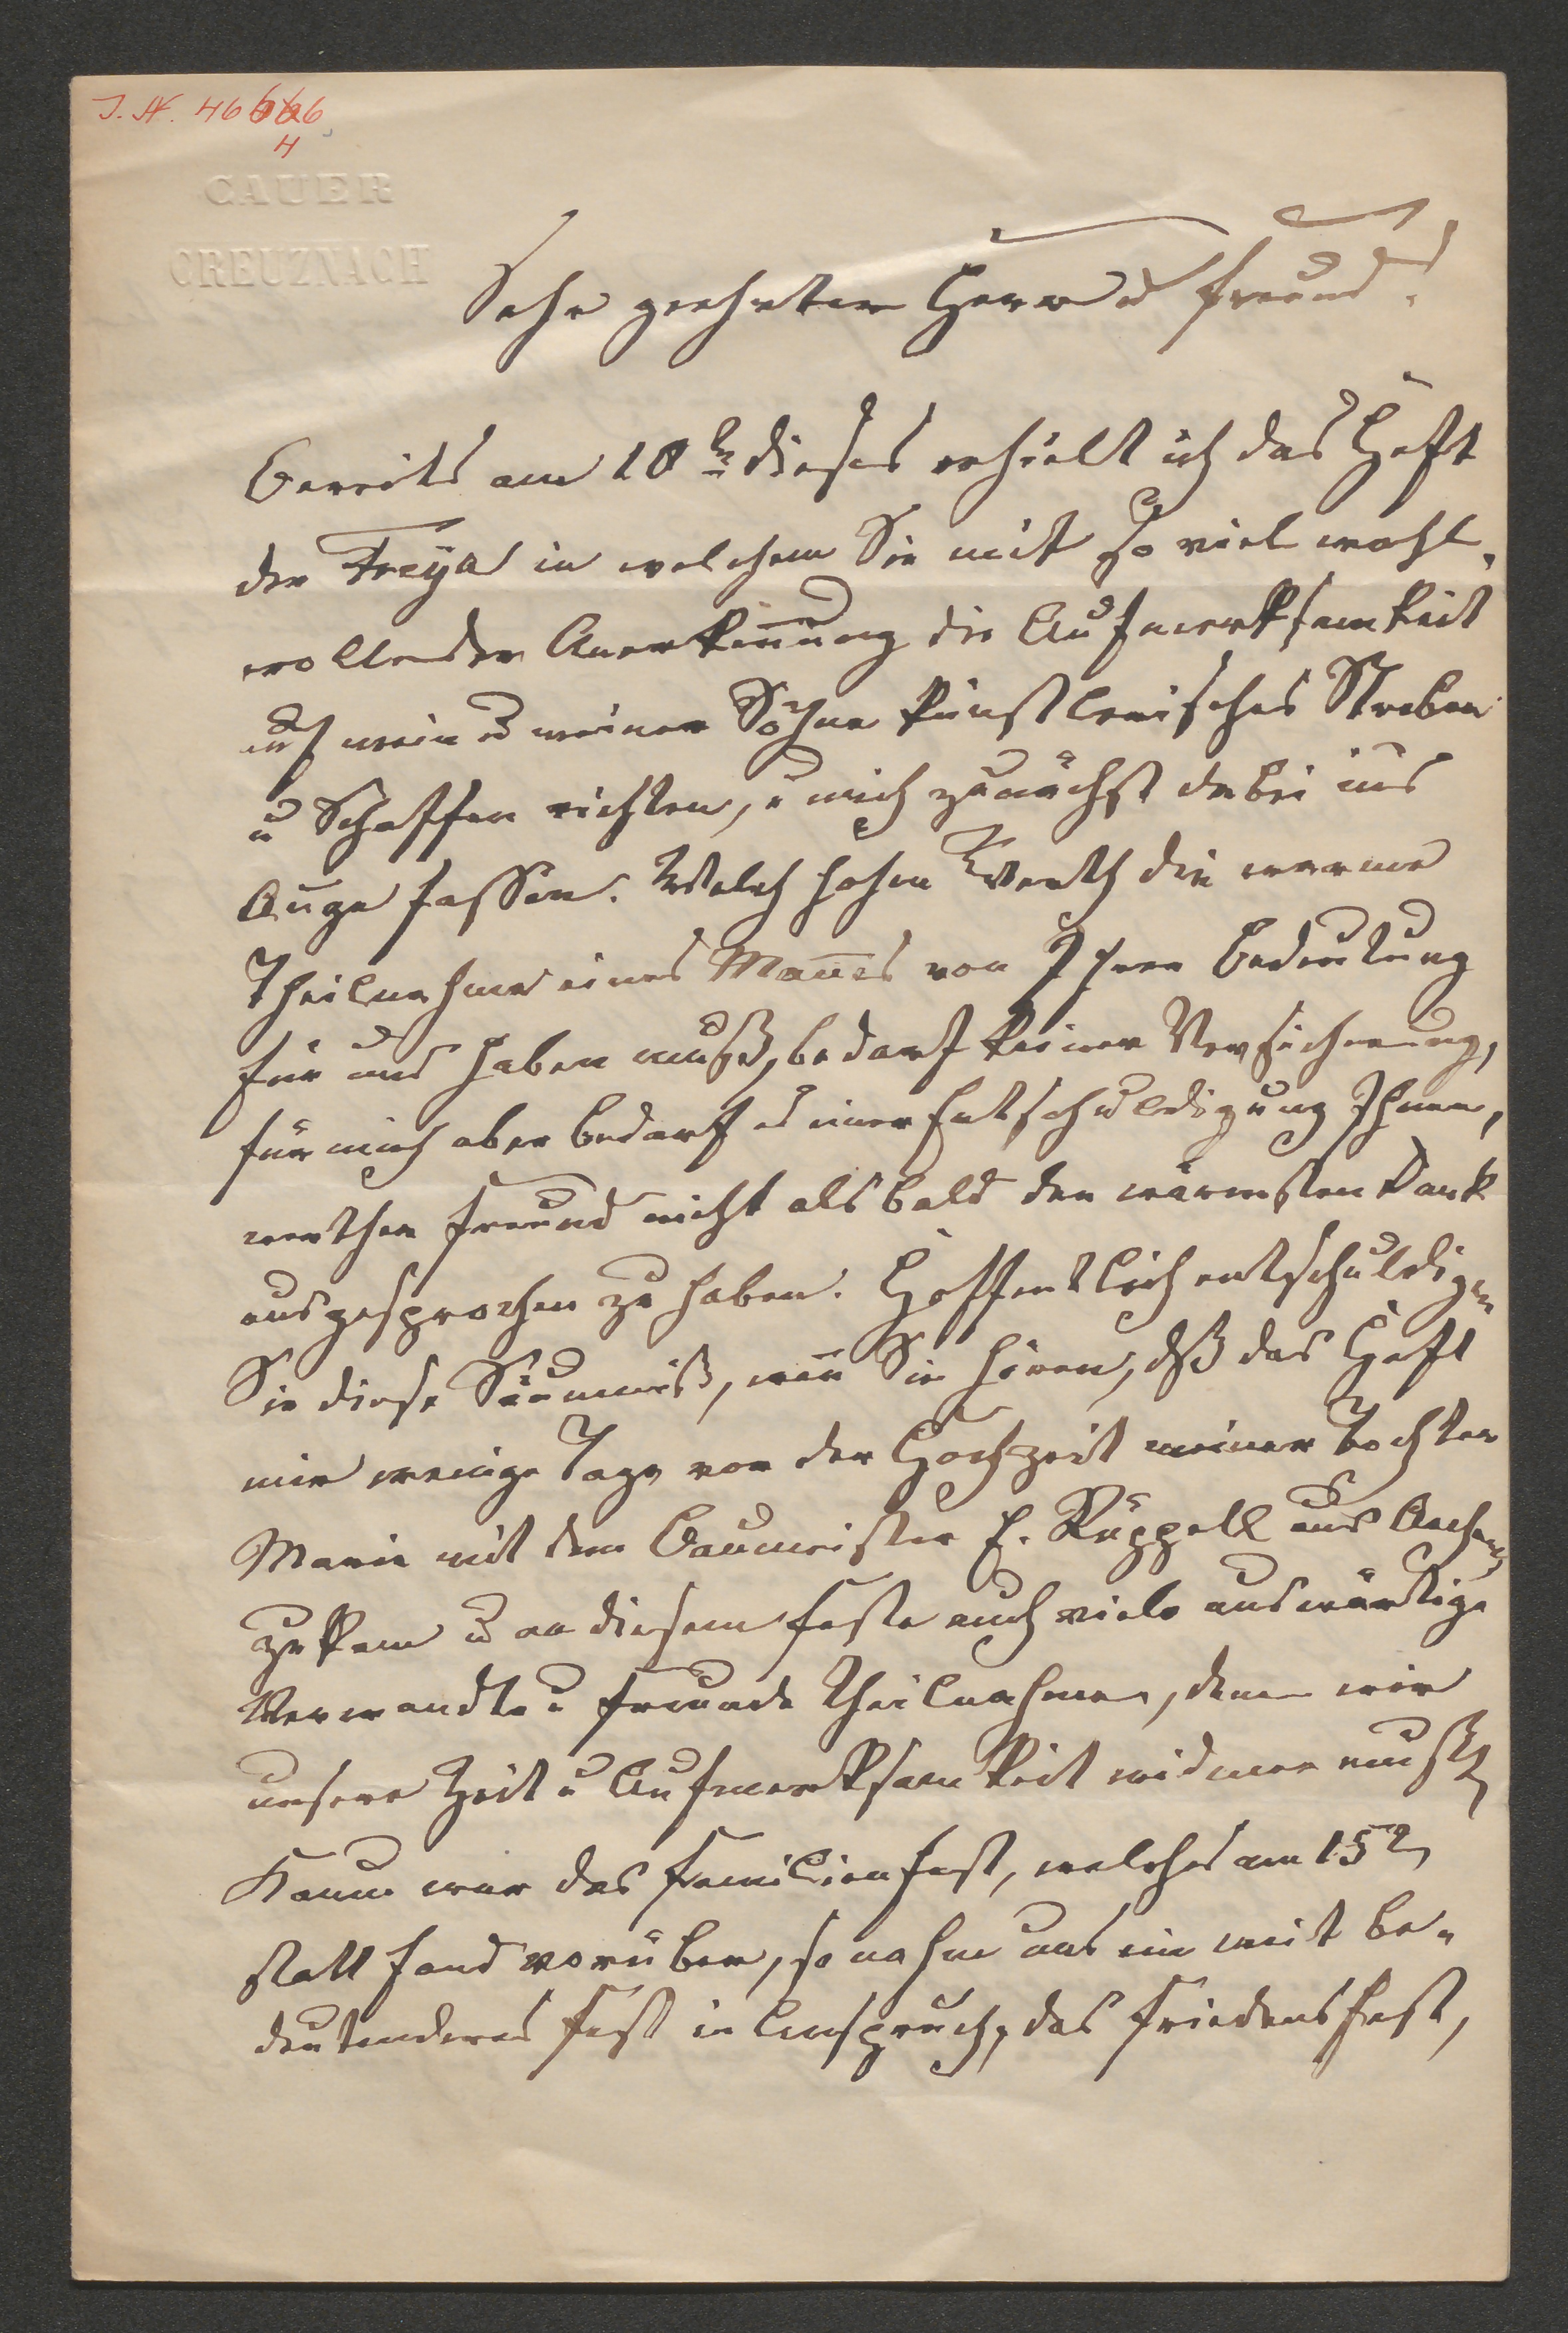 J. N. 46666
4
CAUER
CREUZNACH
Sehr geehrter Herr u Freund.
Bereits am 10ten dieses erhielt ich das Heft
der Freya in welchem Sie mit so viel wohl-
wollender Anerkennung die Aufmerksamkeit
auf mein u meiner Söhne künstlerisches Streben
u Schaffen richten, u mich zunächst dabei ins
Auge fassen. Welch hohen Werth die warme
Theilnahme eines Mannes von Ihrer Bedeutung
für uns haben muß, bedarf keiner Versicherung,
für mich aber bedarf es einer Entschuldigung Ihnen,
werther Freund nicht alsbald den wärmsten Dank
ausgesprochen zu haben. Hoffentlich entschuldigen
Sie diese Säumniß, wenn Sie hören, dß das Heft
mir wenige Tage vor der Hochzeit meiner Tochter
Marie mit dem Baumeister E. Rüppell aus Aachen
zukam u an diesem Feste auch viele auswärtige
Verwandte u Freunde Theilnahmen, denen wir
unsere Zeit u Aufmerksamkeit widmen mußten
Kaum war das Familienfest, welches am 15ten
statt fand vorüber, so nahm uns ein weit be-
deutenderes Fest in Anspruch, das Friedensfest,